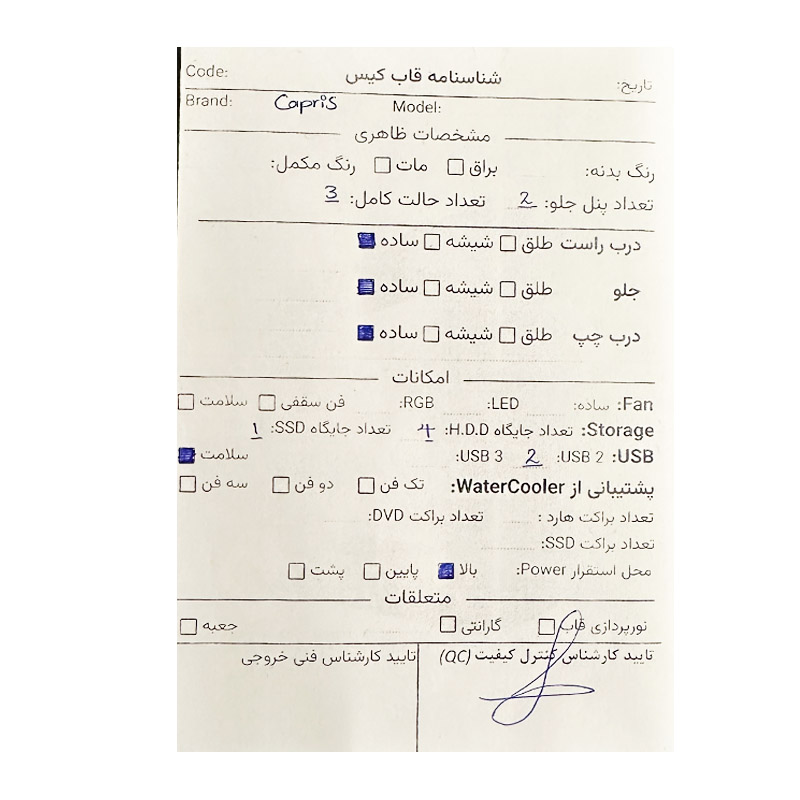 Code: شناسنامه قاب کیس تاریخ:
Brand: Capris Model:
مشخصات ظاهری
رنگ بدنه: براق مات رنگ مکمل:
تعداد پنل جلو: 2 تعداد حالت کامل: 3
درب راست طلق شیشه ساده
جلو طلق شیشه ساده
درب چپ طلق شیشه ساده
امکانات
Fan: ساده: LED: RGB: فن سقفی سلامت
Storage: تعداد جایگاه H.D.D: 4 تعداد جایگاه SSD: 1
USB: USB 2: 2 USB 3: سلامت
پشتیبانی از WaterCooler: تک فن دو فن سه فن
تعداد براکت هارد : تعداد براکت DVD:
تعداد براکت SSD:
محل استقرار Power: بالا پایین پشت
متعلقات
نورپردازی قاب گارانتی جعبه
تایید کارشناس کنترل کیفیت (QC) تایید کارشناس فنی خروجی